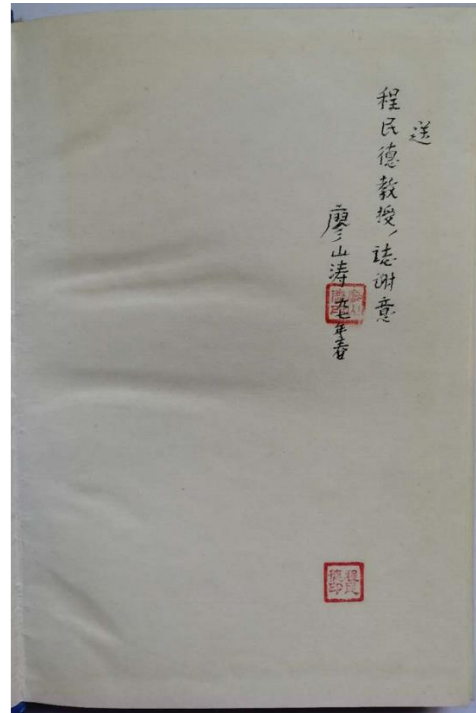 送
程民德教授，誌谢意
廖山涛 九七年春
程民
德印